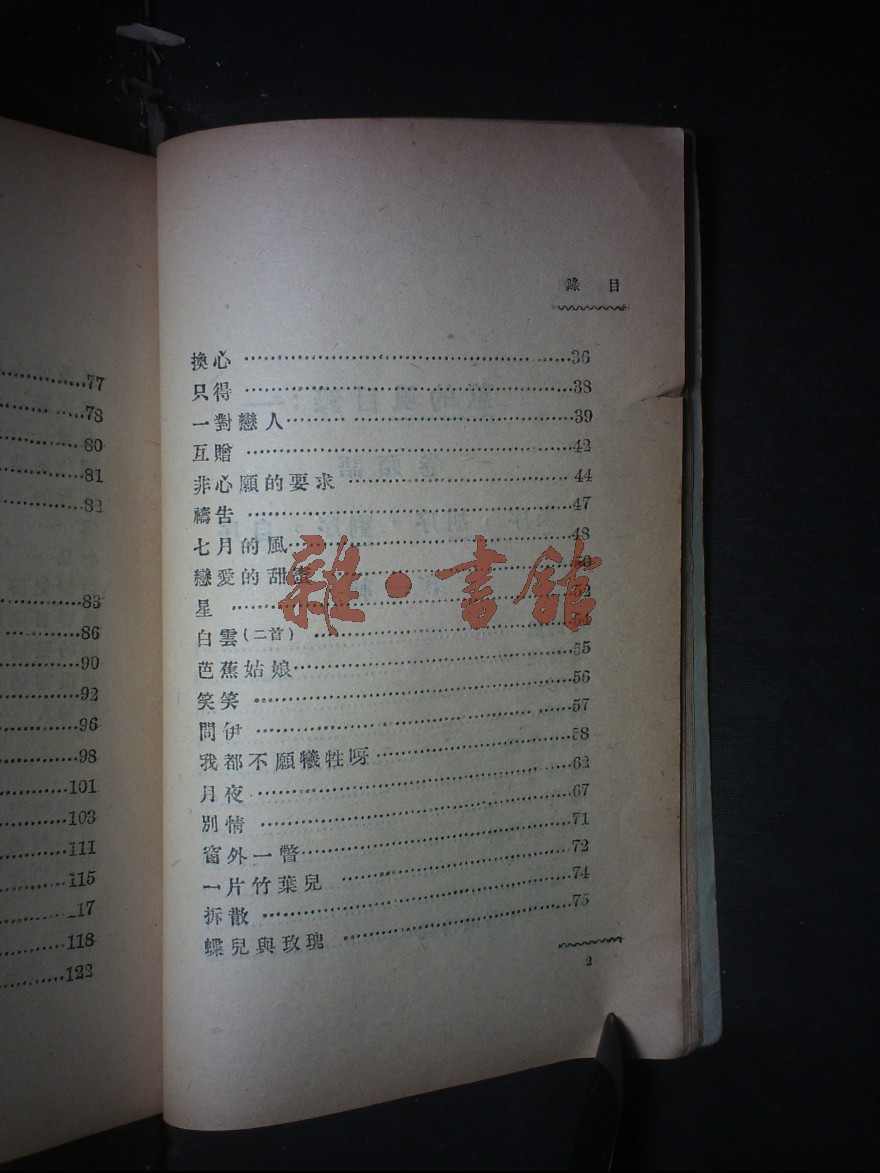 目錄
換心……36
只得……38
一對戀人……39
互贈……42
非心願的要求……44
禱告……47
七月的風……48
戀愛的甜蜜……50
星……52
白雲(二首)……54
芭蕉姑娘……55
笑笑……56
問伊……57
我都不願犧牲呀……58
月夜……62
別情……67
窗外一瞥……71
一片竹葉兒……72
拆散……74
蝶兒與玫瑰……75
2
雜·書館
……77
……78
……80
……81
……82
……83
……86
……90
……92
……96
……98
……101
……103
……111
……115
……17
……118
……122